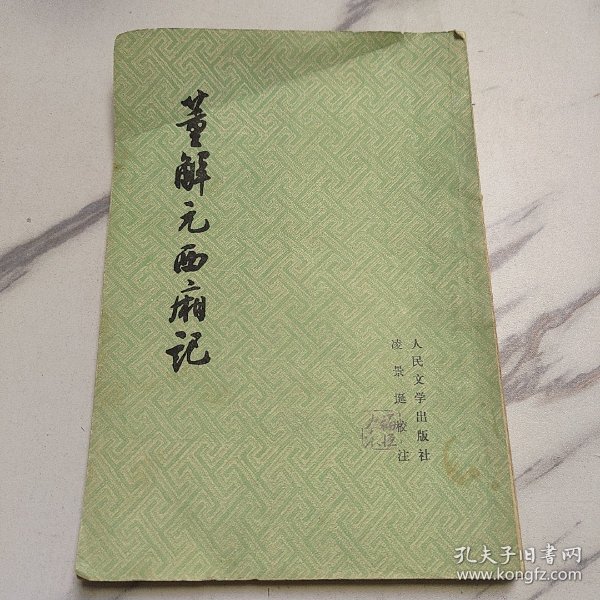 董解元西廂记
人民文学出版社
凌景埏校注
孔夫子旧书网
www.kongfz.com